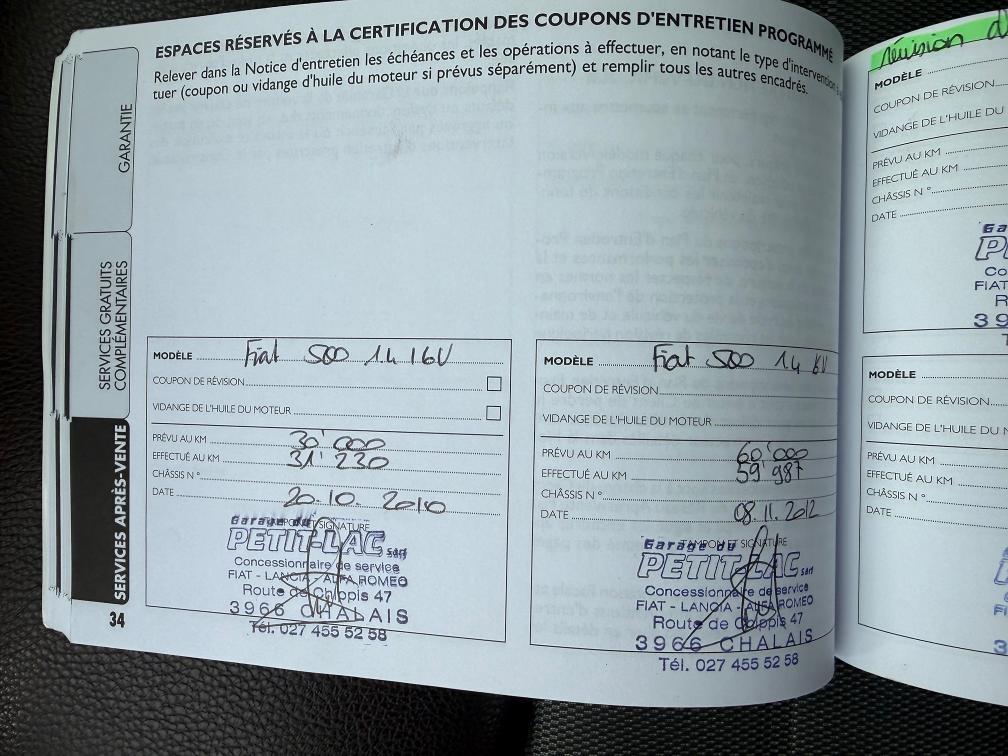 ESPACES RÉSERVÉS À LA CERTIFICATION DES COUPONS D'ENTRETIEN PROGRAMMÉ
Relever dans la Notice d'entretien les échéances et les opérations à effectuer, en notant le type d'intervention
tuer (coupon ou vidange d'huile du moteur si prévus séparément) et remplir tous les autres encadrés.
GARANTIE
SERVICES GRATUITS
COMPLÉMENTAIRES
SERVICES APRÈS-VENTE
34
MODÈLE Fiat 500 1.4 16V
COUPON DE RÉVISION
VIDANGE DE L'HUILE DU MOTEUR
PRÉVU AU KM 30'000
EFFECTUÉ AU KM 31'230
CHÂSSIS N°
DATE 20.10.2010
TAMPON ET SIGNATURE
Garage du
PETIT-LAC sàrl
Concessionnaire de service
FIAT - LANCIA - ALFA ROMEO
Route de Chippis 47
3966 CHALAIS
Tél. 027 455 52 58
MODÈLE Fiat 500 1.4
COUPON DE RÉVISION
VIDANGE DE L'HUILE DU MOTEUR
PRÉVU AU KM 60'000
EFFECTUÉ AU KM 59'987
CHÂSSIS N°
DATE 08.11.2012
TAMPON ET SIGNATURE
Garage du
PETIT-LAC sàrl
Concessionnaire de service
FIAT - LANCIA - ALFA ROMEO
Route de Chippis 47
3966 CHALAIS
Tél. 027 455 52 58
révision
MODÈLE
COUPON DE RÉVISION
VIDANGE DE L'HUILE DU
PRÉVU AU KM
EFFECTUÉ AU KM
CHÂSSIS N°
DATE
Ga
P
Co
FIAT
R
39
MODÈLE
COUPON DE RÉVISION
VIDANGE DE L'HUILE DU M
PRÉVU AU KM
EFFECTUÉ AU KM
CHÂSSIS N°
DATE